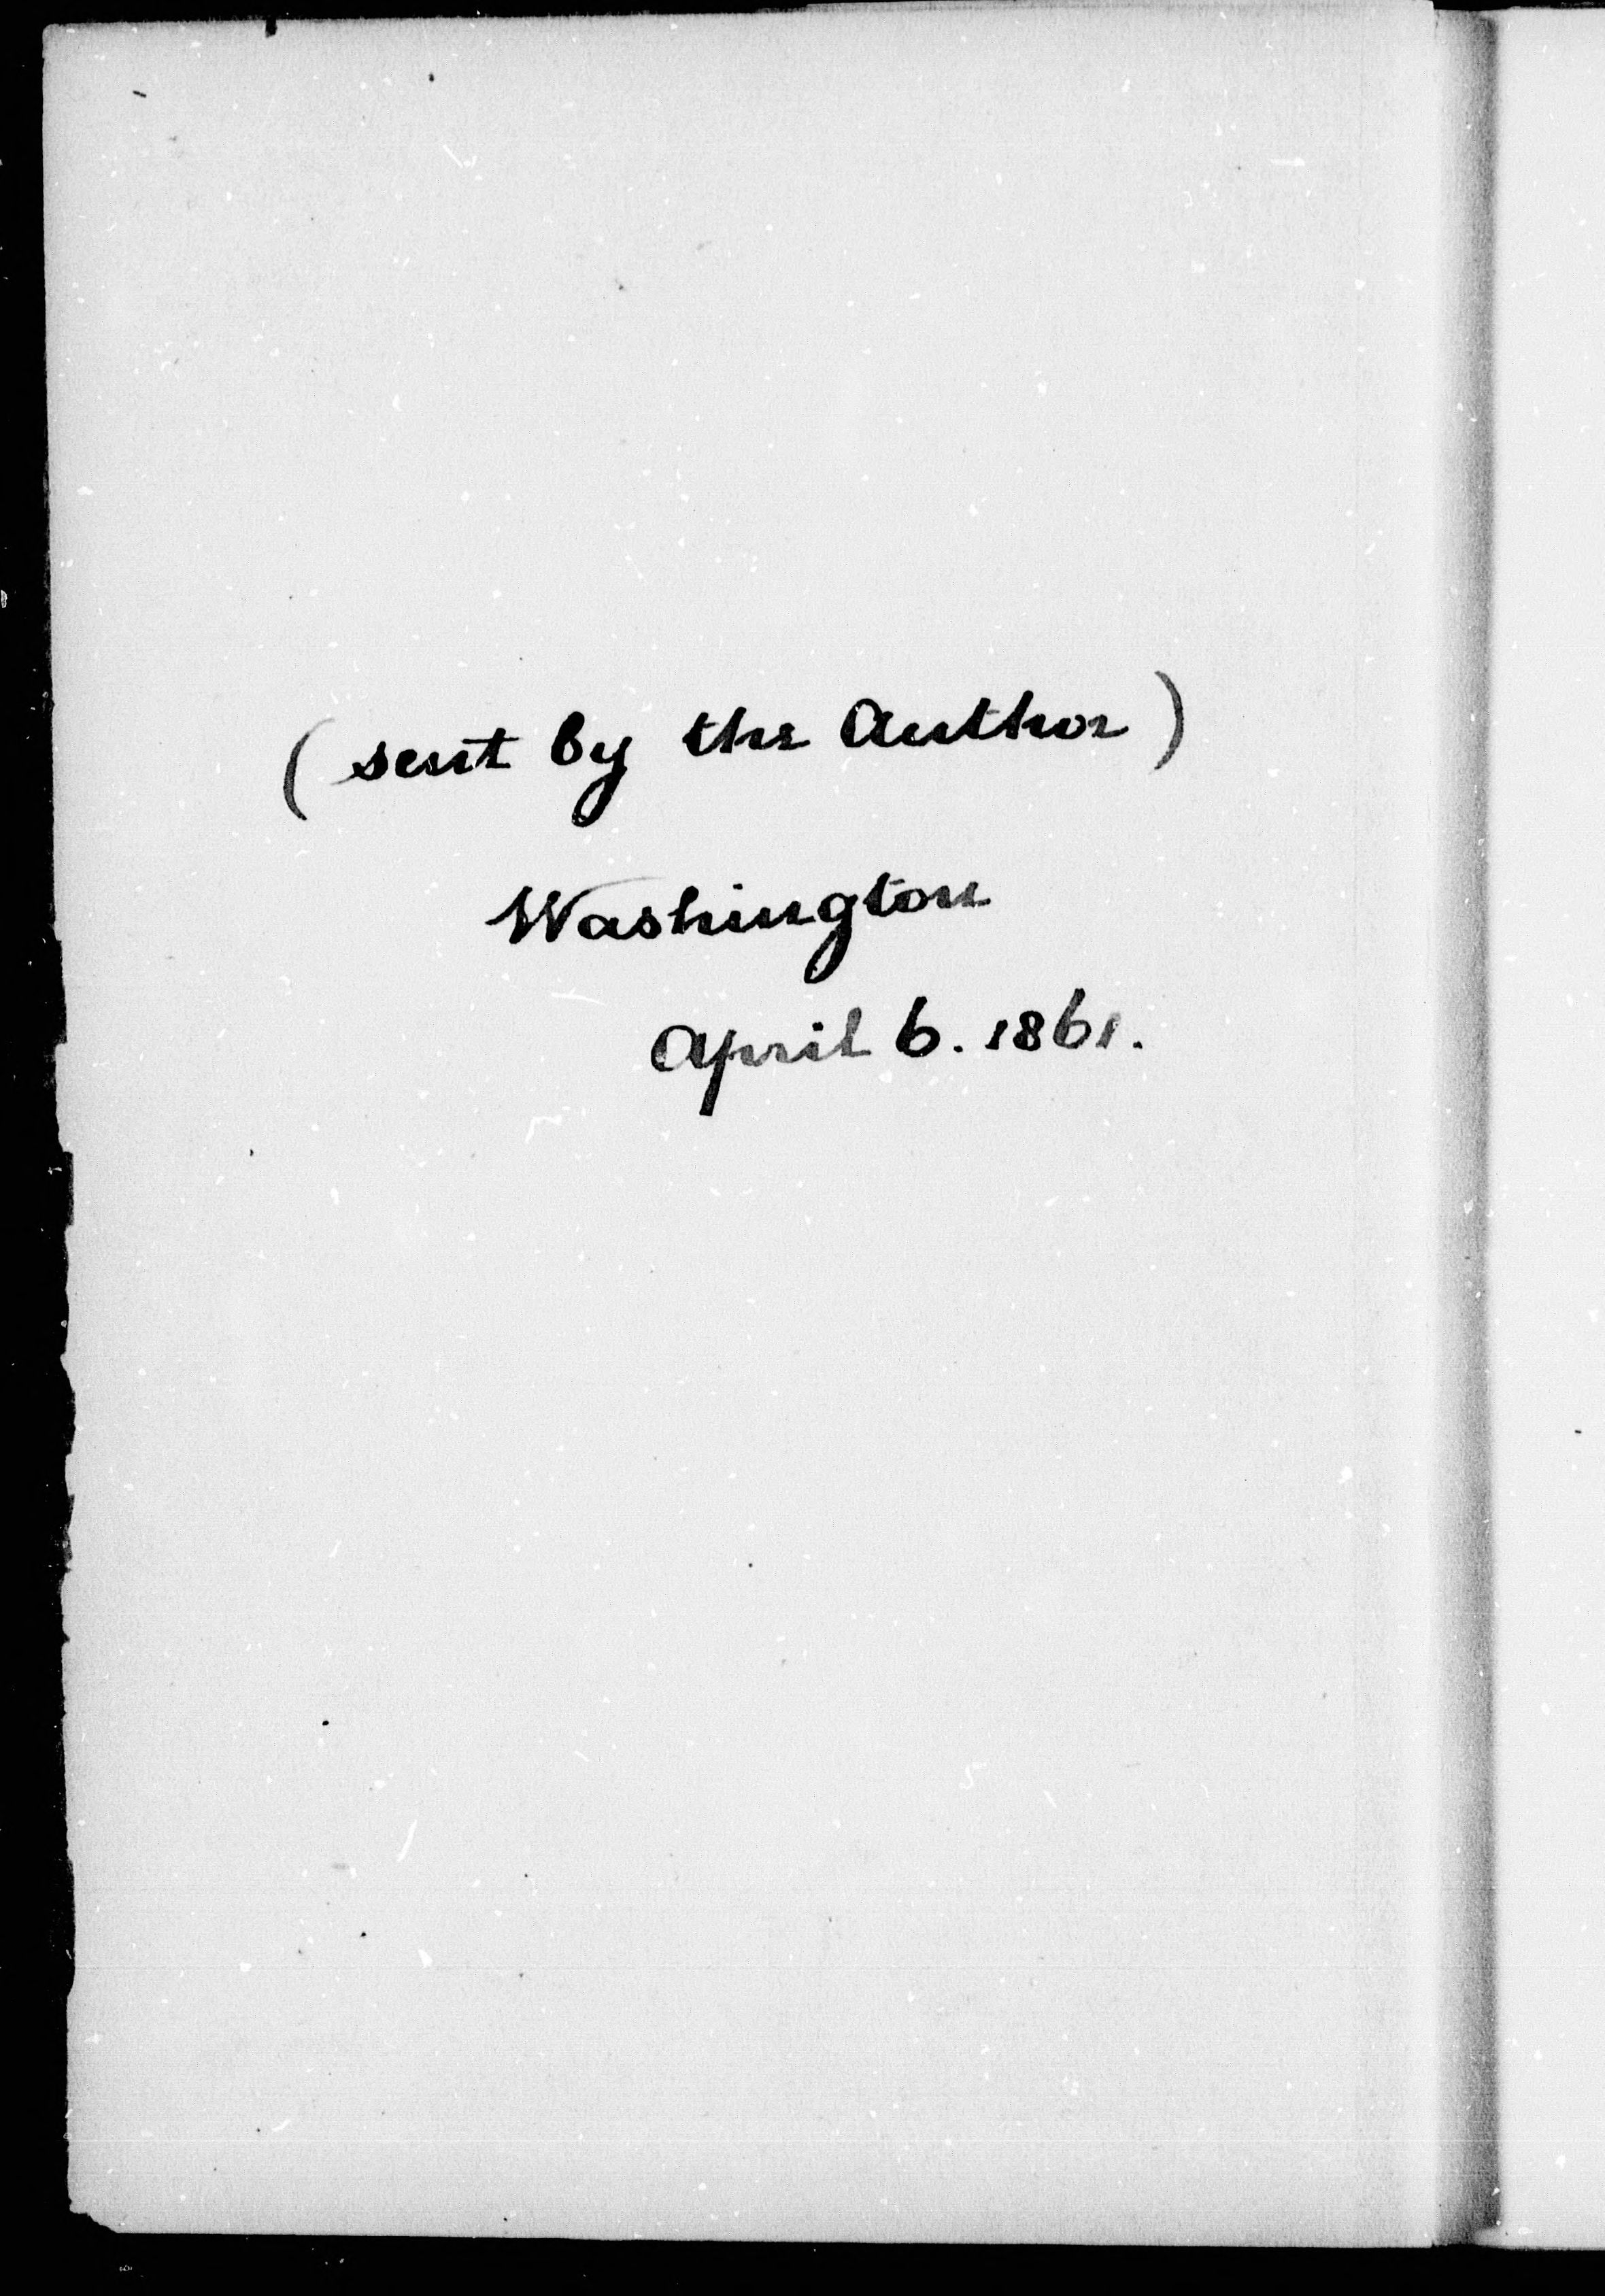 (sent by the Author)
Washington
April 6. 1861.